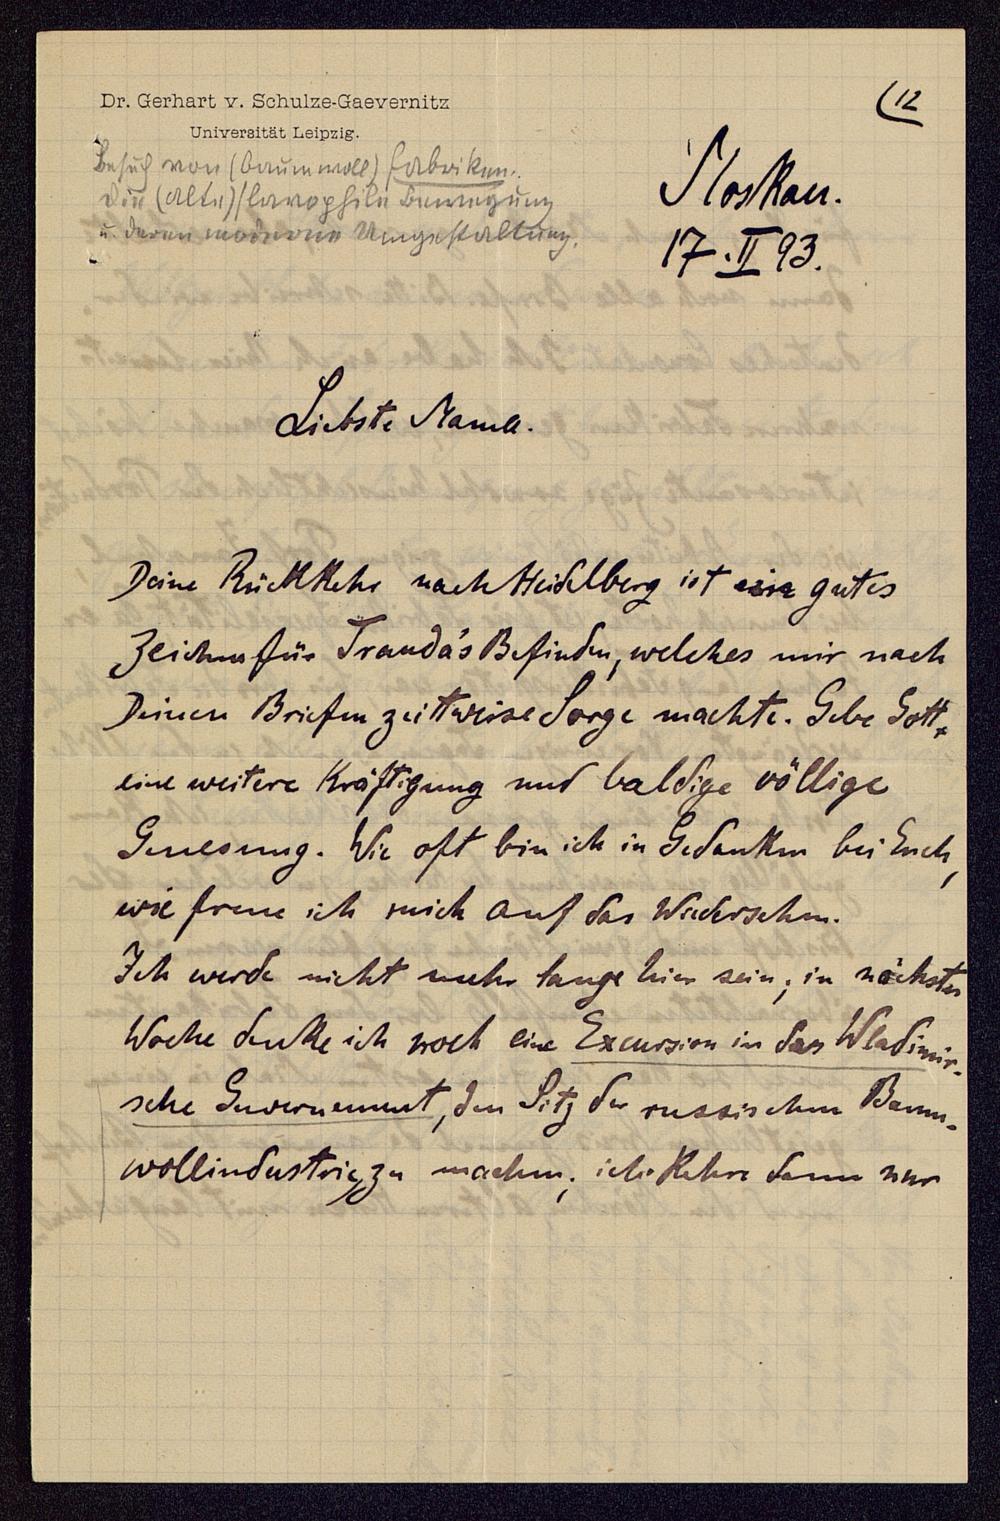 Dr. Gerhart v. Schulze-Gaevernitz
Universität Leipzig.
(12
Besuch von (Baumwoll) fabriken.
Die (alte) slavophile Bewegung
u. deren moderne Umgestaltung.
Moskau.
17. II 93.
Liebste Mama.
Deine Rückkehr nach Heidelberg ist ein gutes
Zeichen für Trauda's Befinden, welches mir nach
Deinen Briefen zeitweise Sorge machte. Gebe Gott
eine weitere Kräftigung und baldige völlige
Genesung. Wie oft bin ich in Gedanken bei Euch,
wie freue ich mich auf das Wiedersehen.
Ich werde nicht mehr lange hier sein; in nächster
Woche denke ich noch eine Excursion in das Wladimir-
sche Guvernement, den Sitz der russischen Baum-
wollindustrie, zu machen; ich kehre dann nur